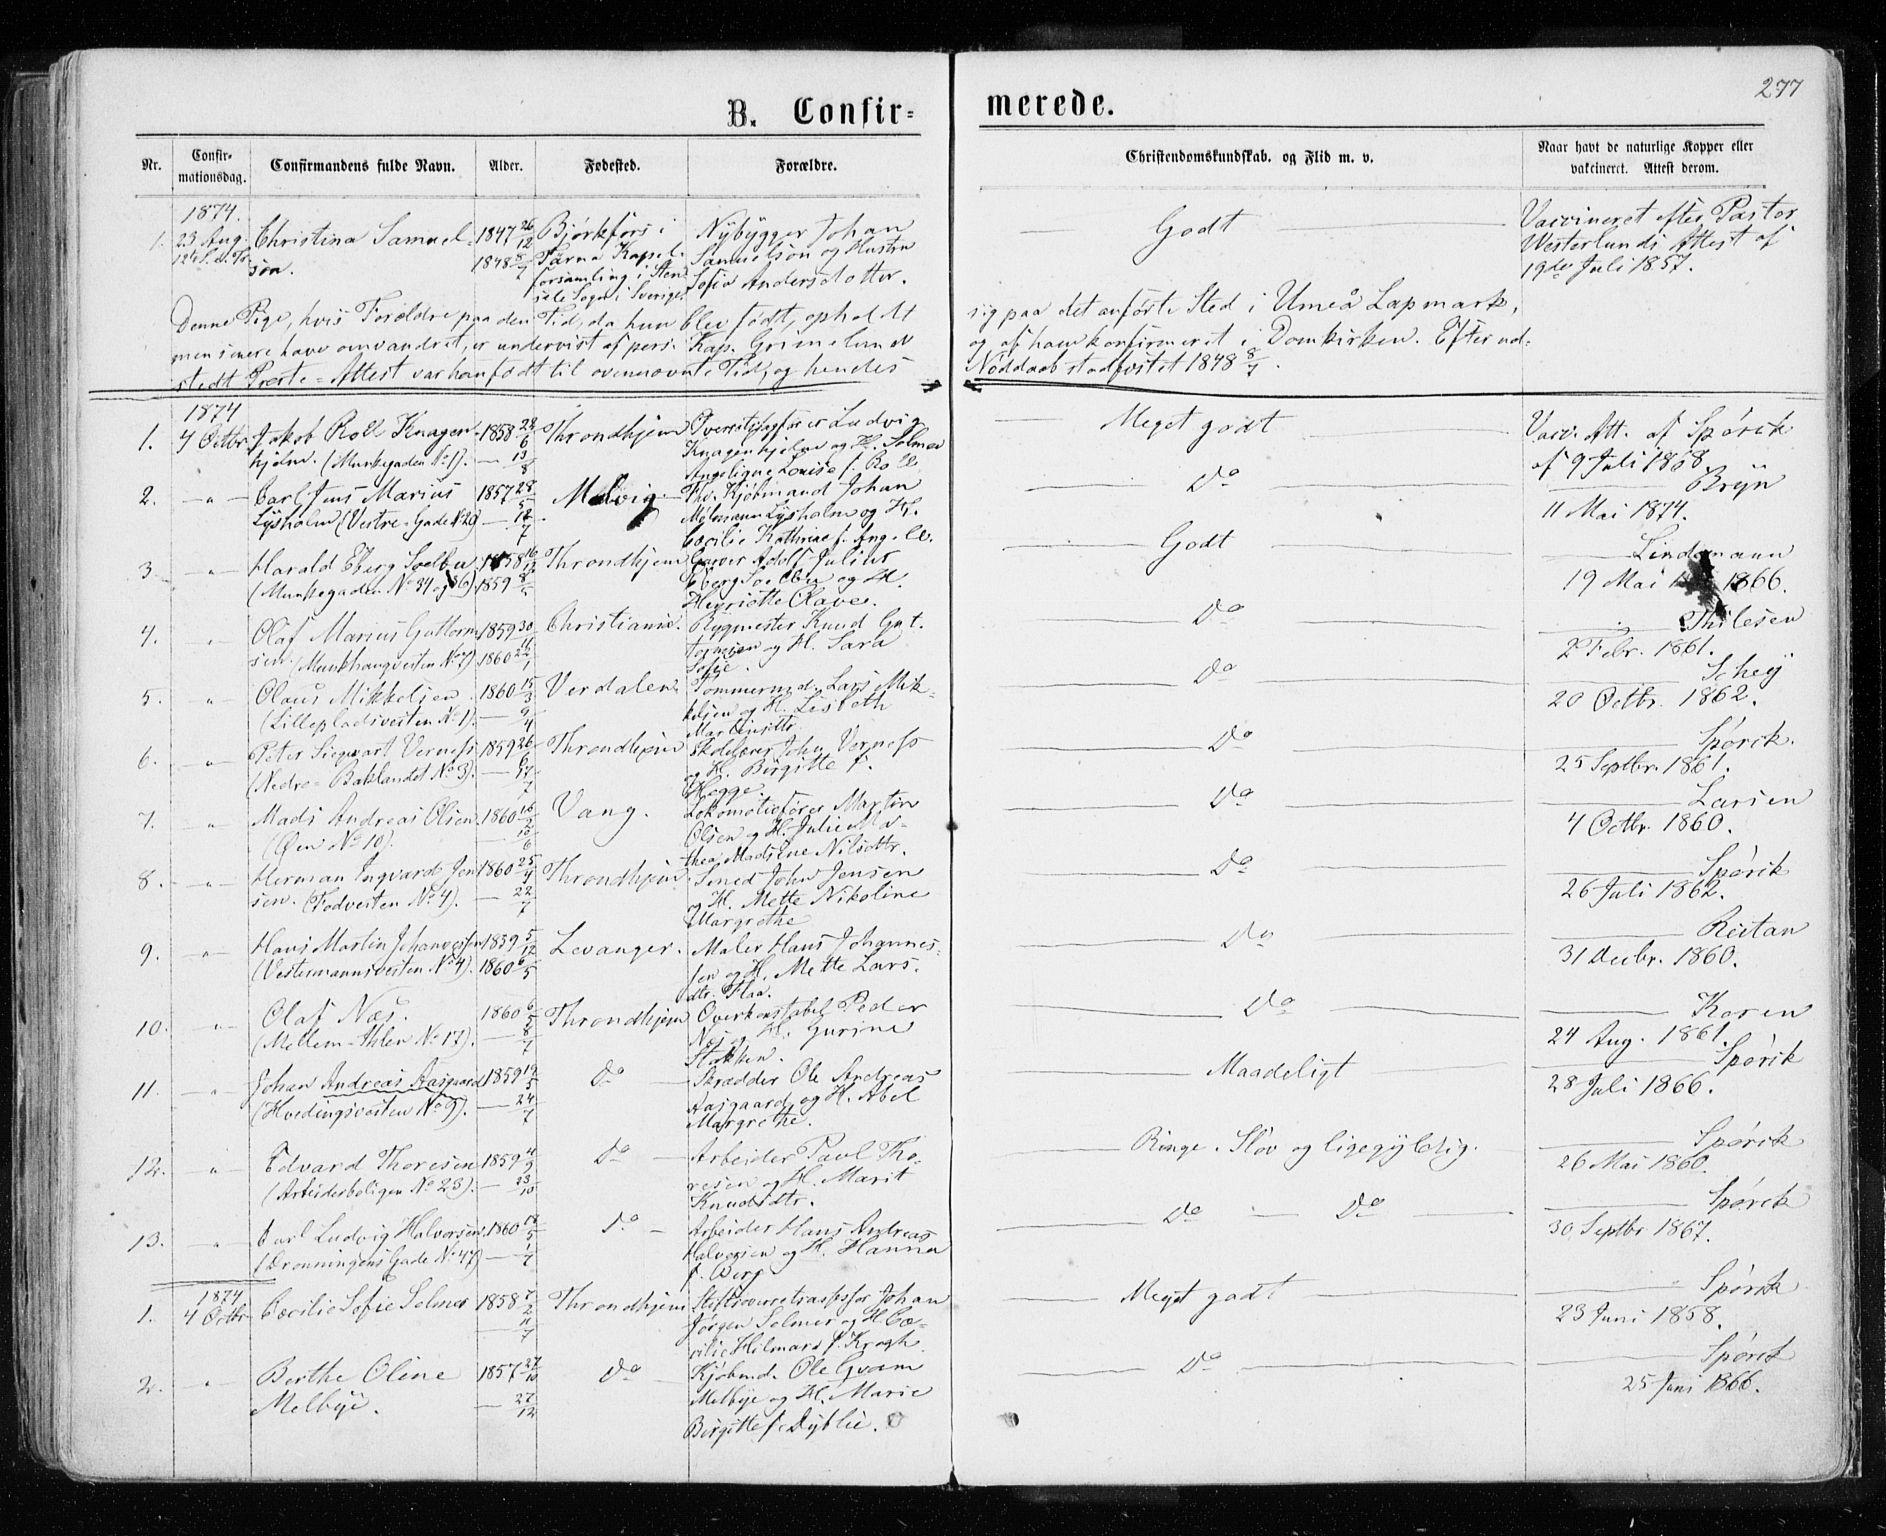 277
B. Confir=
merede.
Nr.
Confir-
mationsdag.
Confirmandens fulde Navn.
Alder.
Fødested.
Forældre.
Christendomskundskab. og Flid m. v.
Naar havt de naturlige Kopper eller
vakcineret. Attest derom.
1874.
1. 23 Aug. Christina Samuel- 1847 26/12 Bjørkfors i Nybygger Johan Godt Vaccineret efter Pastor
12te S. e. Tr. søn. 1848 8/7 Tärna Kapel- Samuelson og Hustru Westerlunds Attest af
forsamling i Sten- Sofia Andersdotter. 19de Juli 1857.
sele Sogn i Sverige.
Denne Pige, hvis Forældre paa den Tid, da hun blev født, opholdt sig paa det anførte Sted i Umeå Lapmark,
men senere have omvandret, er undervist af pers. Kap. Grimelund og af ham konfirmeret i Domkirken. Efter ud-
stedt Præste=Attest var han født til ovennævnte Tid, og hendes Nøddaab stadfæstet 1848 8/7.
1874
1. 4 Octbr. Jakob Roll Knagen- 1858 28/6 Throndhjem Ludvig Meget godt Vacc. Att. af Spørck
hjelm. (Munkegaden No 1). — 13/8 Knagenhjelm og H. Selmer af 9 Juli 1858
Angelique Louise f. Roll
2. — " — Carl Jens Marius 1857 28/5 Malvig. Fhv. Kjøbmand Johan Do — Bryn
Lysholm (Vestre=Gade No 29) — 12/7 Mølmann Lysholm og H. 11 Mai 1874.
Cæcilie Kathrine f. Angell.
3. " Harald Eberg Soelberg 1858 16/12 Throndhjem Garver Adolf Julius Godt — Lindemann
(Munkegaden No 34 og 36). 1859 Eberg og H. 19 Mai 1866.
Henriette
4. " Olaf Marius Guttorm- 1859 30/11 Christiania. Rygmester Knud Gut- Do — Thilesen
sen. (Munkhaugveiten No 7). 1860 22/1 tormsen og H. Sara 2 Febr. 1861.
Sofie.
5. — " — Olaus Mikkelsen 1860 15/3 Verdalen Tømmermd. Lars Mik- Do — Schey
(Lillepladsveiten No 1). — 9/4 kelsen og H. Lisbeth 20 Octbr. 1862.
Martinsdtr.
6. — " — Peter Siegwart Verness 1859 26/6 Throndhjem Skolelærer John Verness Do — Spørck.
(Nedre=Baklandet No 3). — 17/7 og H. Birgitte f. 25 Septbr. 1861.
Hegge.
7. — " — Mads Andreas Olsen. 1860 16/2 Vang. Lokomotivfører Martin Do — Larsen
(Øen No 10). — 10/6 Olsen og H. Julie Ma- 4 Octbr. 1860.
thea Madsine Nilsdtr.
8. — " — Herman Ingvard Jen- 1860 25/4 Throndhjem. Smed John Jensen Do — Spørck
sen. (Fodveiten No 4). — 22/7 og H. Mette Nikoline 26 Juli 1862.
Margrethe
9. — " — Hans Martin Johannessen 1859 5/12 Levanger. Maler Hans Johannes- Do — Reitan
(Vestermannsveiten No 4). 1860 6/5 sen og H. Mette Lars- 31 Decbr. 1860.
dtr. Flaa.
10. — " — Olaf Næs. 1860 6/2 Throndhjem Overkonstabel Peder Do — Koren
(Mellem=Ihlen No 17). — 8/7 Næs og H. Gurine 24 Aug. 1861.
Stokken.
11. — " — Johan Andreas Aasgaard 1859 19/5 Do Skrædder Ole Andreas Maadeligt — Spørck
(Hvedingsveiten No 9). — 24/7 Aasgaard og H. Abel 28 Juli 1866.
Margrethe.
12. " Edvard Thoresen 1859 4/9 Do — Arbeider Paul Tho- Ringe. Sløv og ligegyldig. — Spørck
(Arbeiderboligen No 23). — 23/10 resen og H. Marit 26 Mai 1860.
Knudsdtr.
13. " Carl Ludvig Halvorsen 1860 18/5 Do — Arbeider Hans Andreas Do — Do — Spørck
(Dronningens Gade No 47) — 1/7 Halvorsen og H. Hanna 30 Septbr 1867.
f. Berg
1874
1. 4 Octbr. Cæcilie Sofie Selmer 1858 7/2 Throndhjem Stiftsoverretsassessor Johan Meget godt — Spørck
— 11/7 Jørgen Selmer og H. Cæ- 23 Juni 1858.
cilie Hilmard f. Krogh.
2. — " — Berthe Oline 1857 27/10 Do Kjøbmd. Ole Gram Do — Spørck
Melbye. — 27/12 Melbye og H. Marie 25 Juni 1866.
Birgitte f. Dyblie.